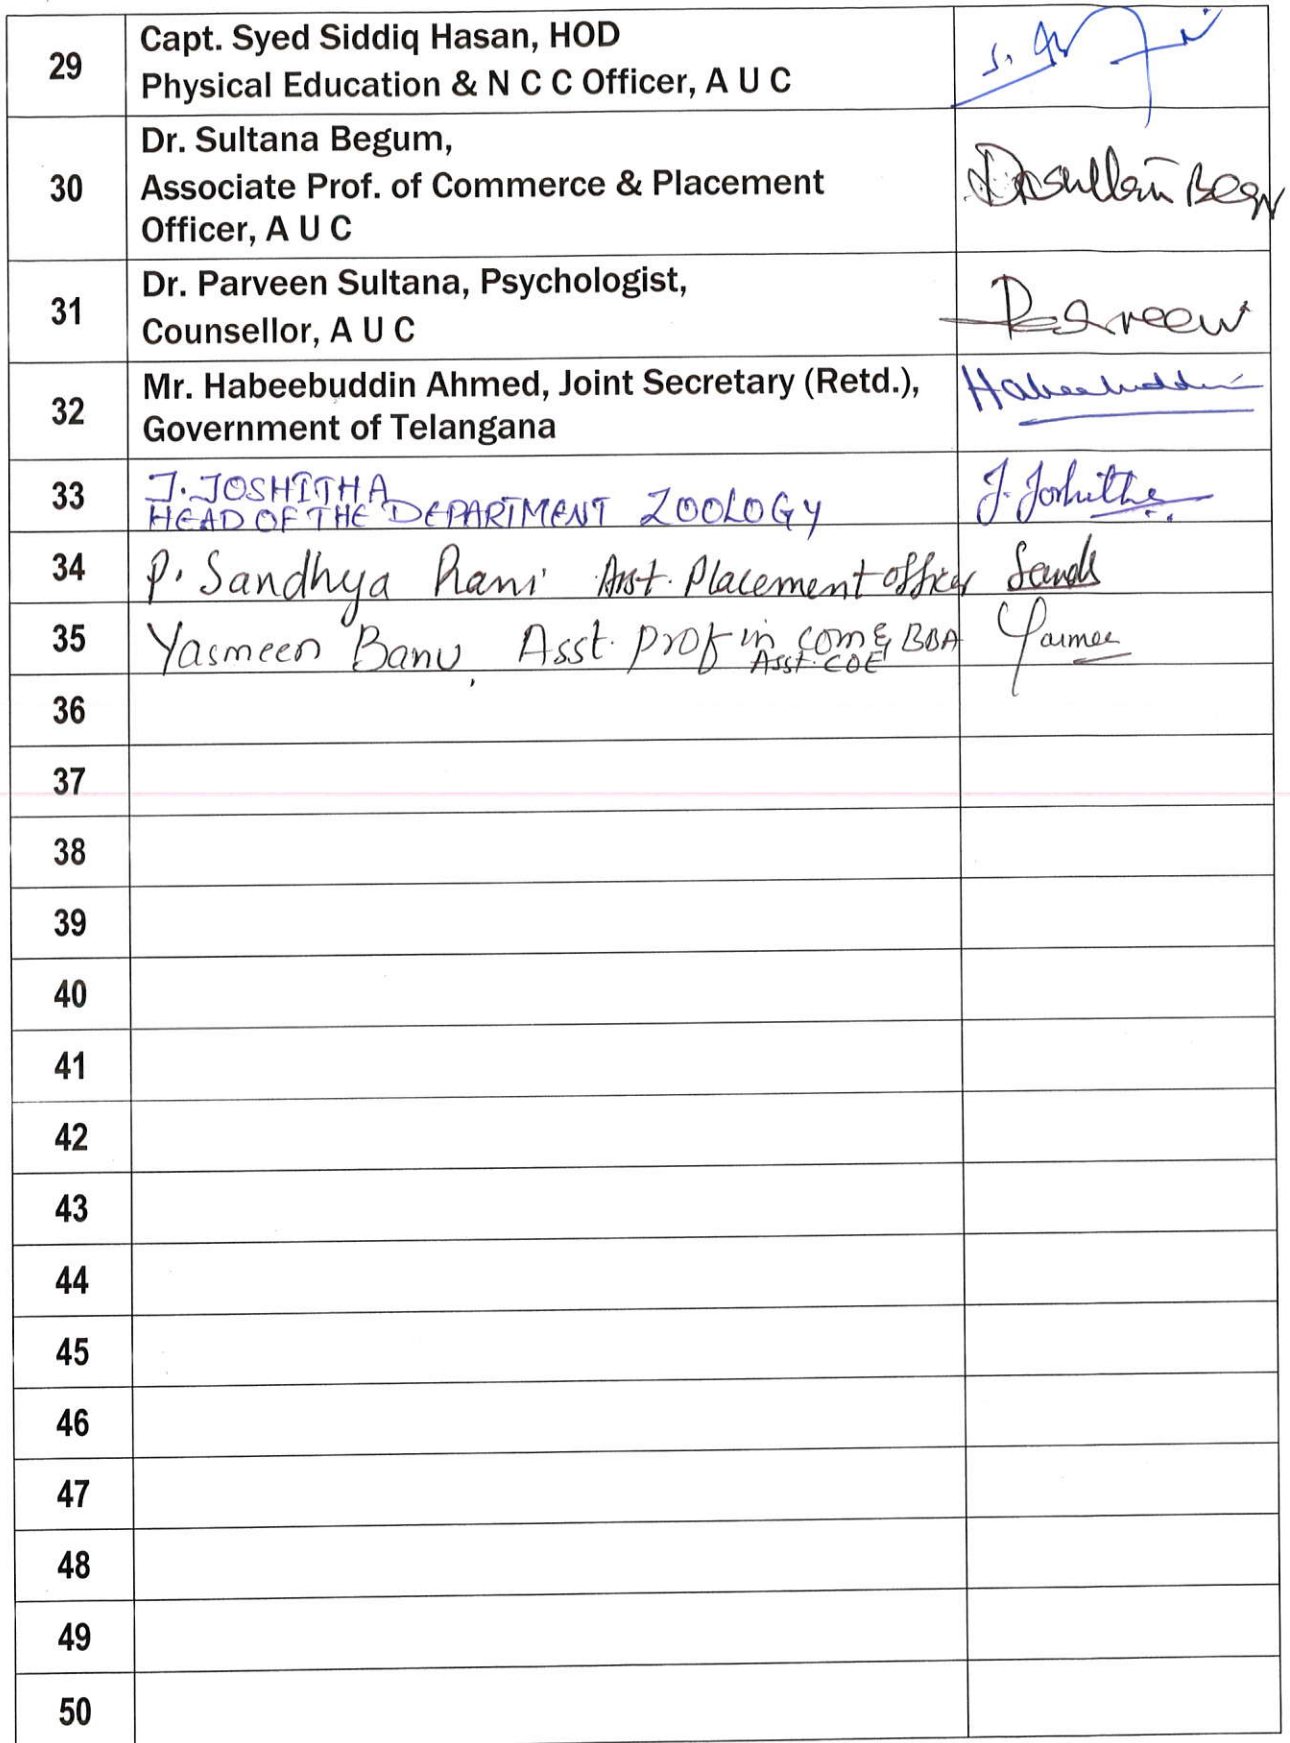 29
Capt. Syed Siddiq Hasan, HOD
Physical Education & N C C Officer, A U C
30
Dr. Sultana Begum,
Associate Prof. of Commerce & Placement
Officer, A U C
31
Dr. Parveen Sultana, Psychologist,
Counsellor, A U C
Parveen
32
Mr. Habeebuddin Ahmed, Joint Secretary (Retd.),
Government of Telangana
Habeebuddin
33
J. JOSHITHA
HEAD OF THE DEPARTMENT ZOOLOGY
J. Joshitha
34
P. Sandhya Rani Asst. Placement officer
35
Yasmeen Banu, Asst. Prof in com & BBA
Asst. COE
36
37
38
39
40
41
42
43
44
45
46
47
48
49
50